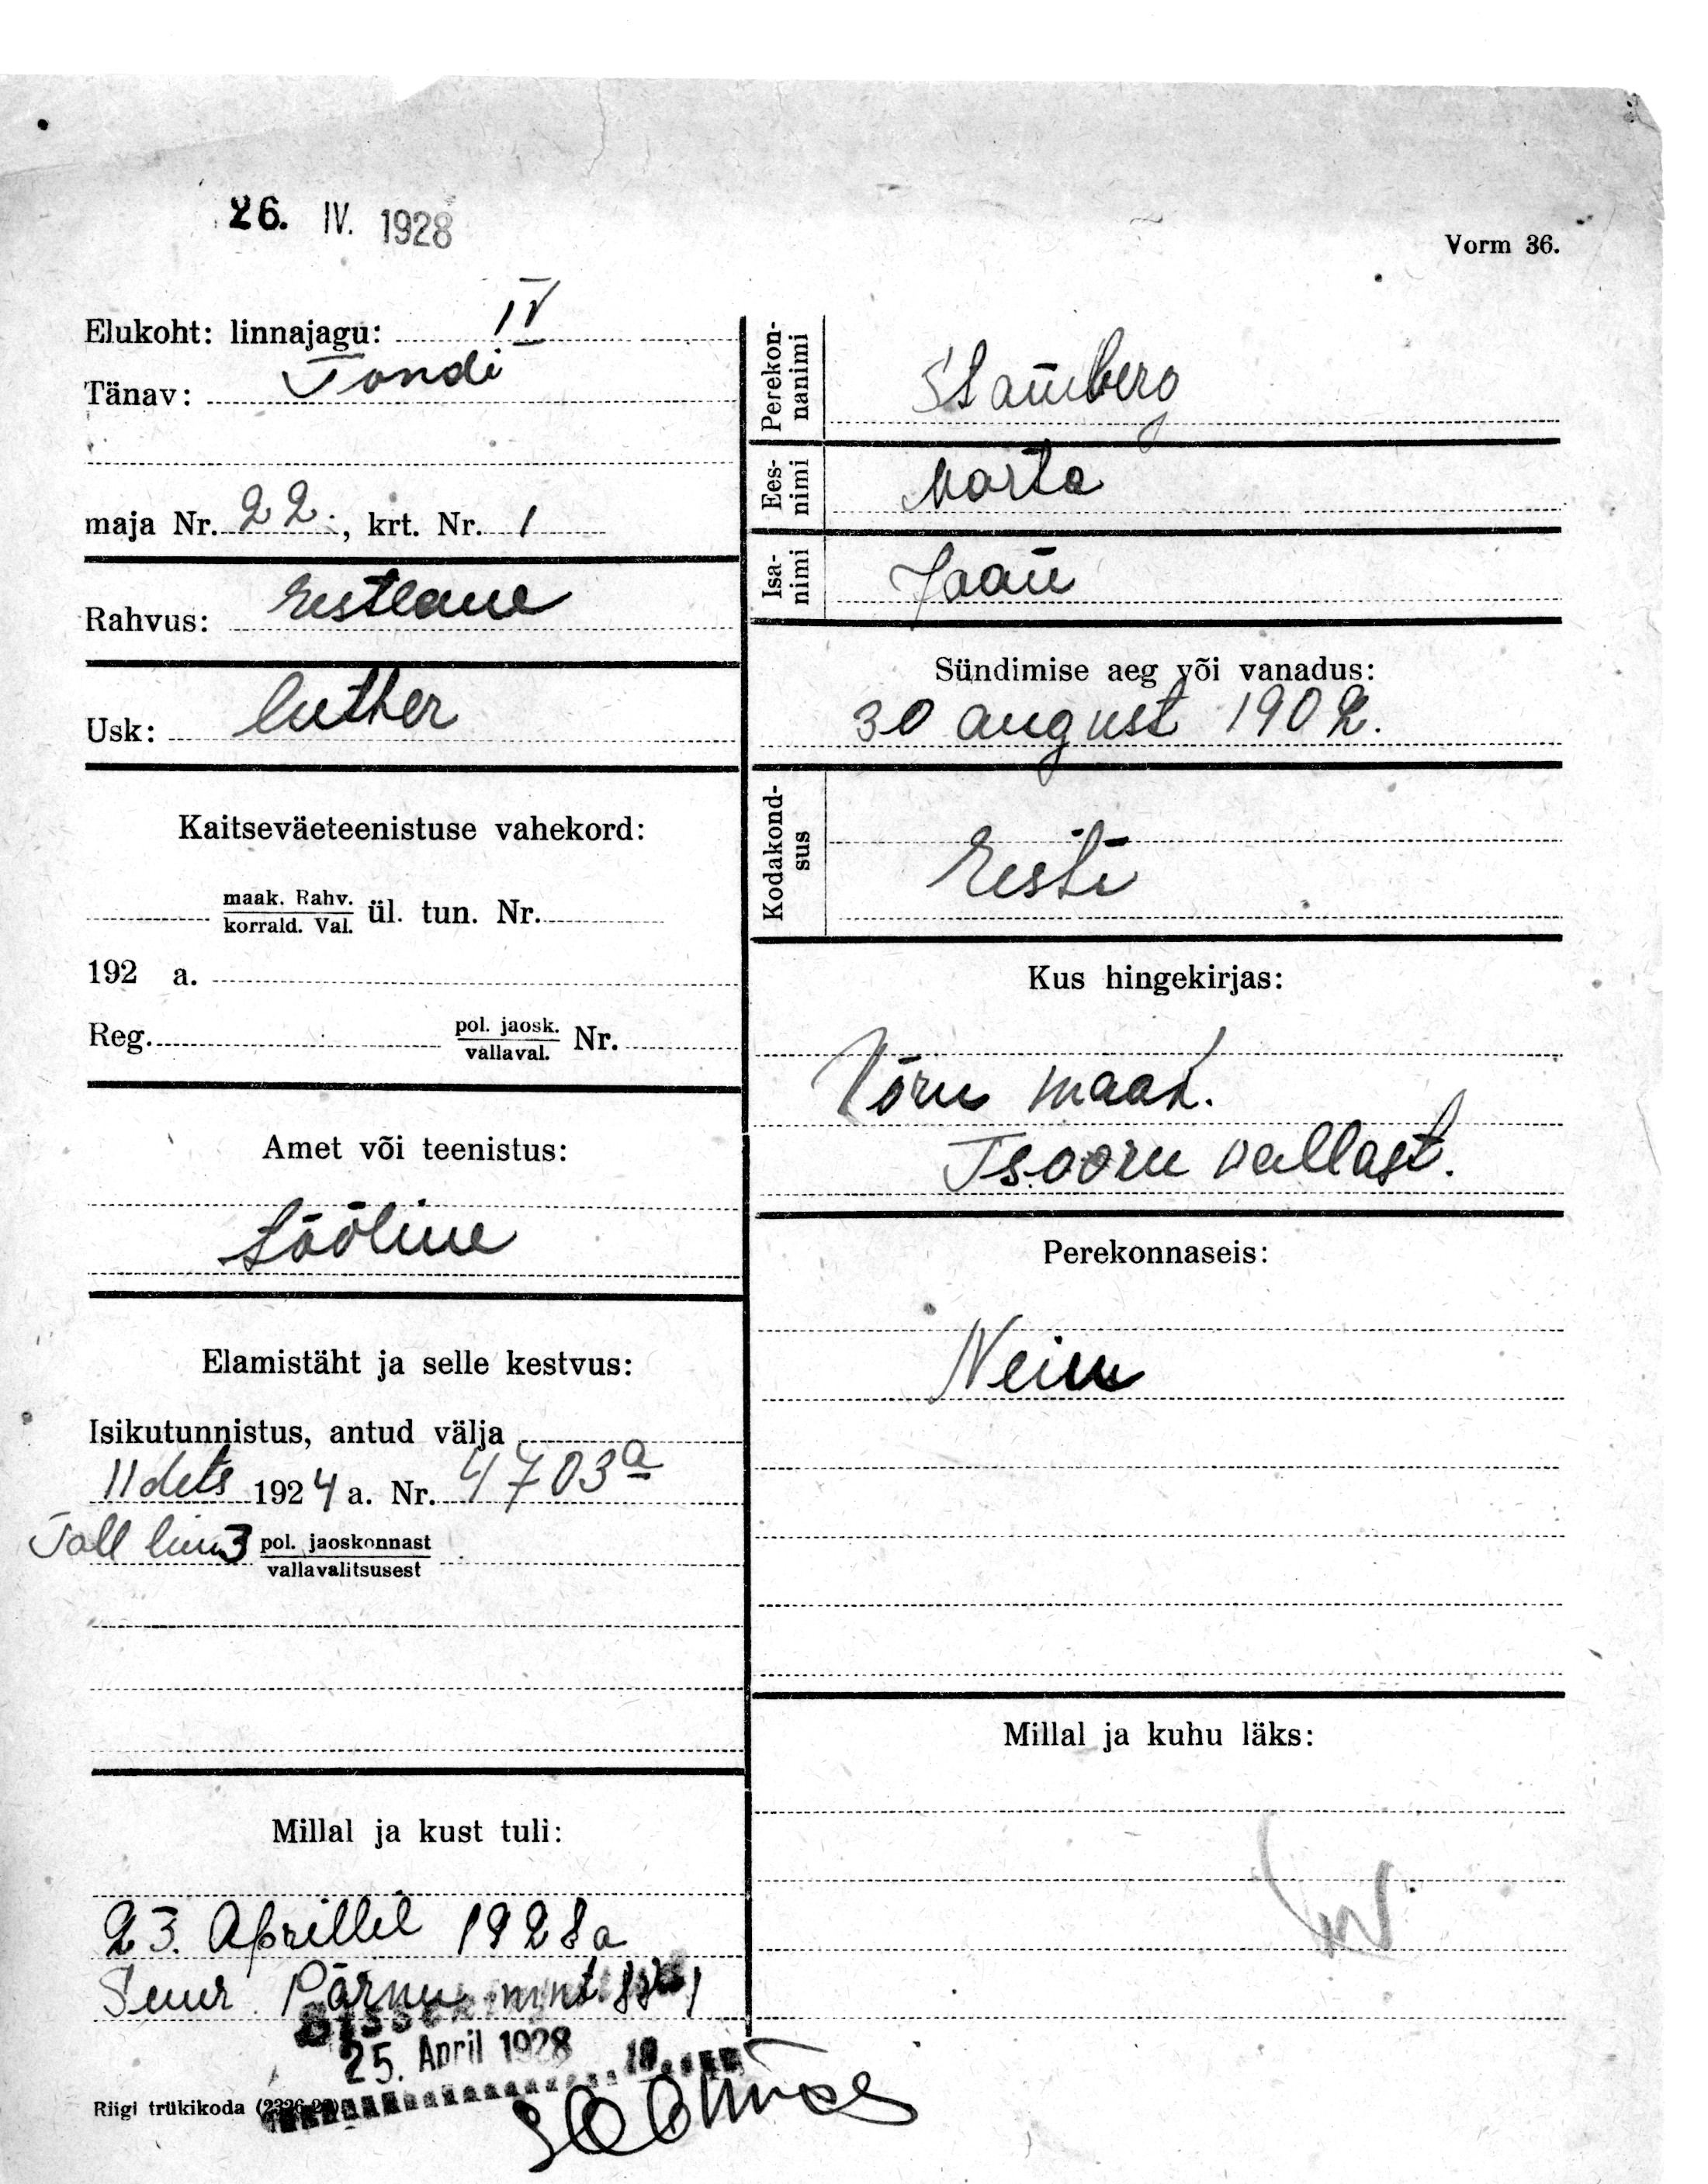 26. IV. 1928
Vorm 36.
Elukoht: linnajagu: IV
Tänav: Tondi
maja Nr. 22., krt. Nr. 1
Rahvus: Eestlane
Usk: luther
Kaitseväeteenistuse vahekord:
maak. Rahv.
korrald. Val. ül. tun. Nr.
192 a.
Reg. pol. jaosk.
vallaval. Nr.
Amet või teenistus:
tööline
Elamistäht ja selle kestvus:
Isikutunnistus, antud välja
11 dets 1924 a. Nr. 4703a
Tall linn 3 pol. jaoskonnast
vallavalitsusest
Millal ja kust tuli:
23. Aprillil 1928 a
Suur. Pärnu mnt.
25. April 1928
Riigi trükikoda
Perekon-
nanimi
Stamberg
Ees-
nimi
Marta
Isa-
nimi
Jaan
Sündimise aeg või vanadus:
30 august 1902.
Kodakond-
sus
Eesti
Kus hingekirjas:
Võru maak.
Tsooru vallast.
Perekonnaseis:
Neiu
Millal ja kuhu läks: